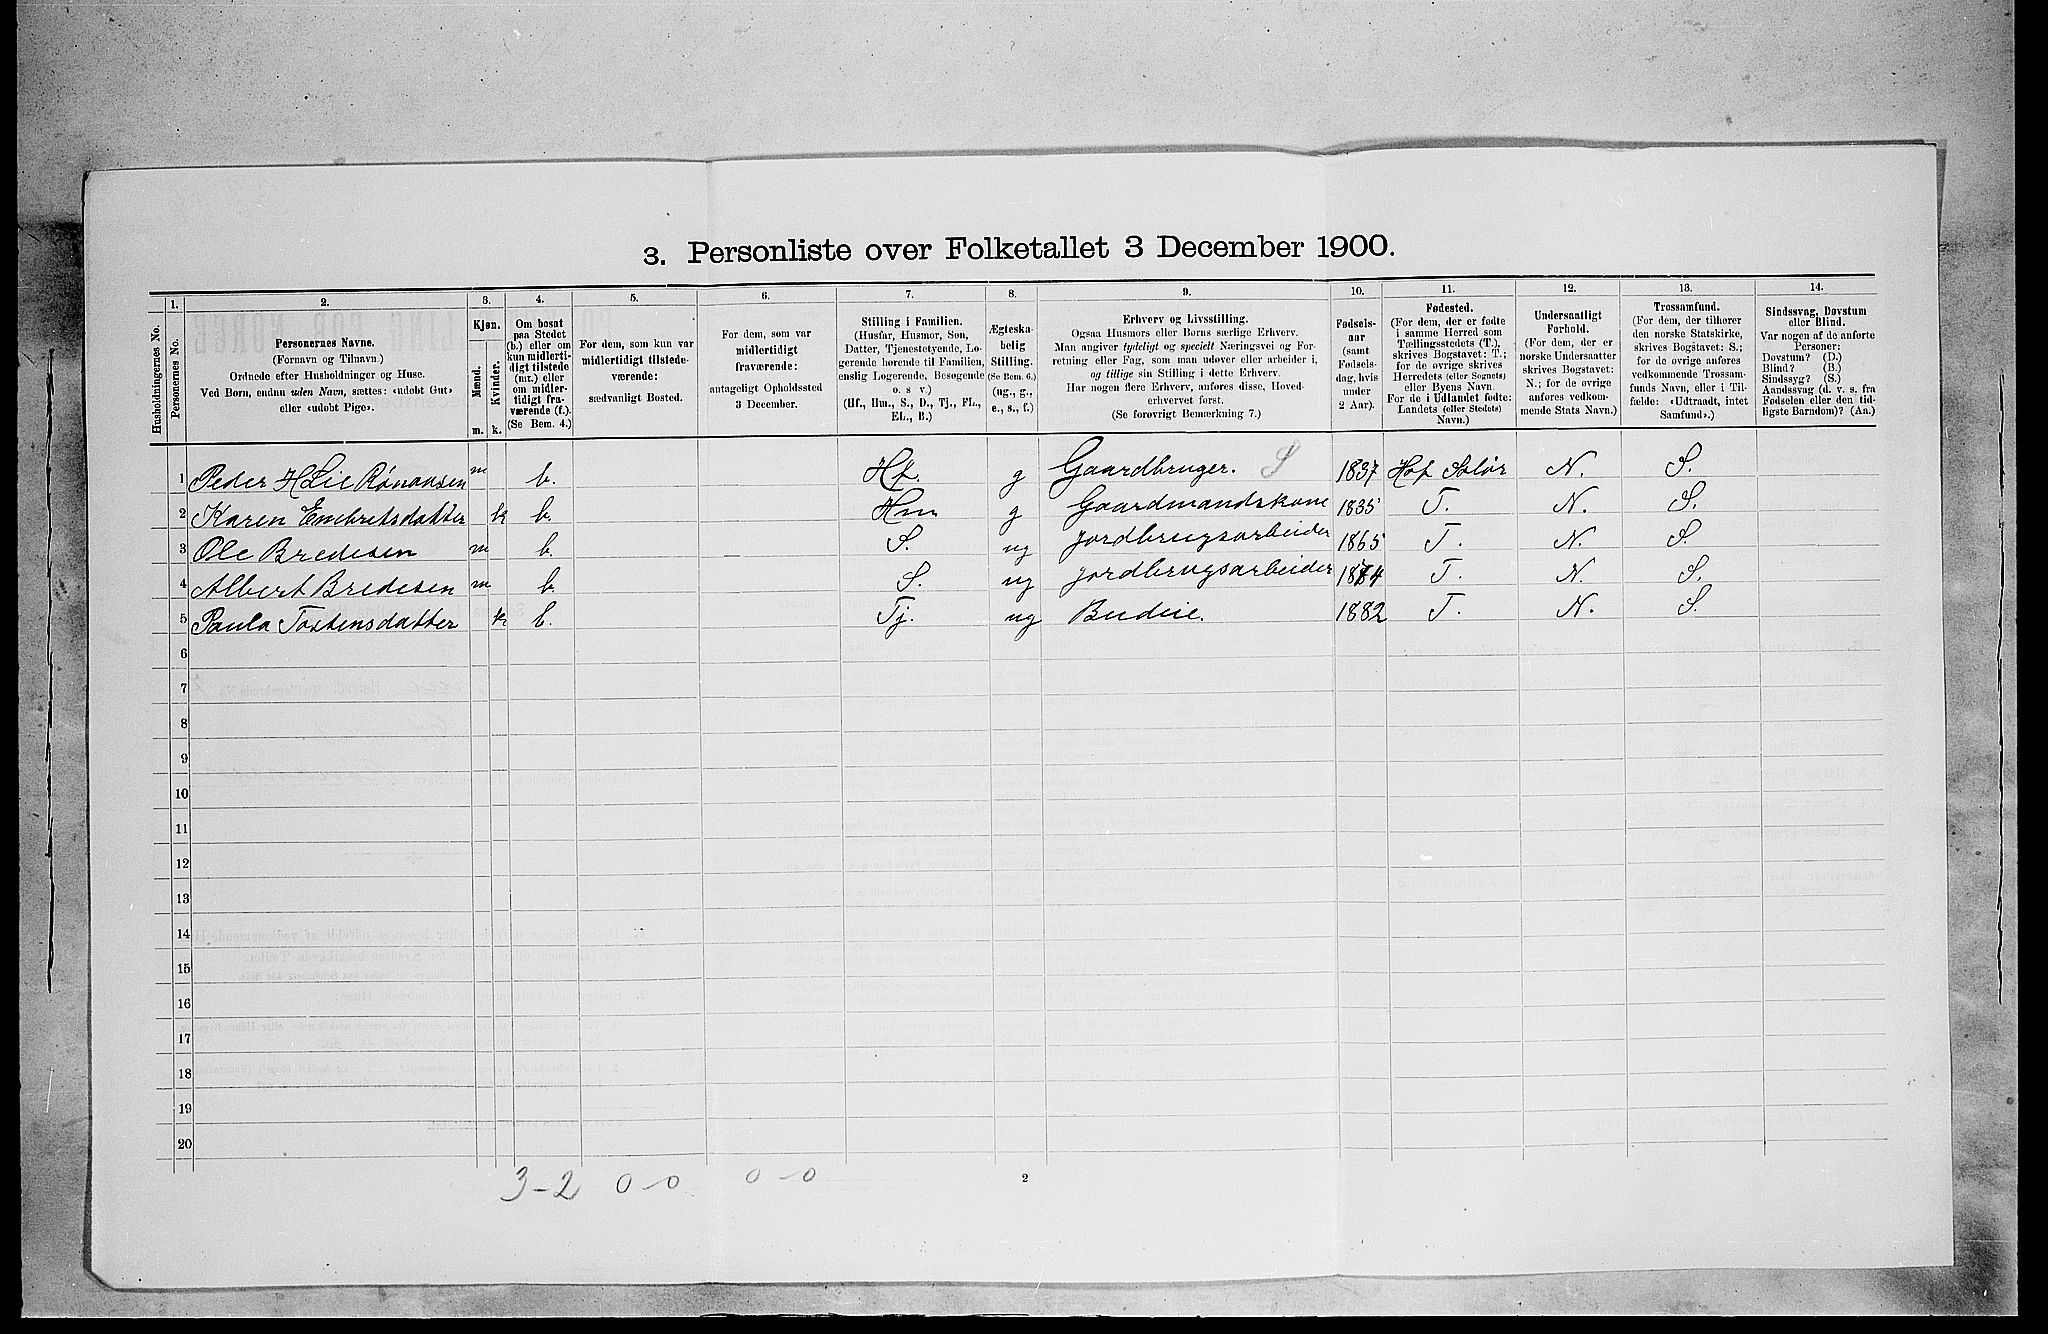 3. Personliste over Folketallet 3 December 1900.
1. 2. 3. 4. 5. 6. 7. 8. 9. 10. 11. 12. 13. 14.
Husholdningernes No.
Personernes No.
Personernes Navne.
(Fornavn og Tilnavn.)
Ordnede efter Husholdninger og Huse.
Ved Børn, endnu uden Navn, sættes: «udøbt Gut»
eller «udøbt Pige».
Kjøn.
Mænd.
Kvinder.
m. k.
Om bosat
paa Stedet
(b.) eller om
kun midlerti-
digt tilstede
(mt.) eller
om midler-
tidigt fra-
værende (f.).
(Se Bem. 4.)
For dem, som kun var
midlertidigt tilstede-
værende:
sædvanligt Bosted.
For dem, som var
midlertidigt
fraværende:
antageligt Opholdssted
3 December.
Stilling i Familien.
(Husfar, Husmor, Søn,
Datter, Tjenestetyende, Lo-
gerende hørende til Familien,
enslig Logerende, Besøgende
o. s. v.)
(Hf., Hm., S., D., Tj., FL.,
EL., B.)
Ægteska-
belig
Stilling.
(Se Bem. 6.)
(ug., g.,
e., s., f.)
Erhverv og Livsstilling.
Ogsaa Husmors eller Børns særlige Erhverv.
Man angiver tydeligt og specielt Næringsvei og For-
retning eller Fag, som man udøver eller arbeider i,
og tillige sin Stilling i dette Erhverv.
Har nogen flere Erhverv, anføres disse, Hoved-
erhvervet først.
(Se forøvrigt Bemærkning 7.)
Fødsels-
aar
(samt
Fødsels-
dag, hvis
under
2 Aar).
Fødested.
(For dem, der er fødte
i samme Herred som
Tællingsstedets (T.),
skrives Bogstavet: T.;
for de øvrige skrives
Herredets (eller Sognets)
eller Byens Navn.
For de i Udlandet fødte:
Landets (eller Stedets)
Navn.)
Undersaatligt
Forhold.
(For dem, der er
norske Undersaatter
skrives Bogstavet:
N.; for de øvrige
anføres vedkom-
mende Stats Navn.)
Trossamfund.
(For dem, der tilhører
den norske Statskirke,
skrives Bogstavet: S.;
for de øvrige anføres
vedkommende Trossam-
funds Navn, eller i Til-
fælde: «Udtraadt, intet
Samfund».)
Sindssvag, Døvstum
eller Blind.
Var nogen af de anførte
Personer:
Døvstum? (D.)
Blind? (B.)
Sindssyg? (S.)
Aandssvag (d. v. s. fra
Fødselen eller den tid-
ligste Barndom)? (Aa.)
1 Peder H Lie m b. Hf. g Gaardbruger. S 1837 Hof Solør N. S.
2 Karen Embretsdatter k b. Hm g Gaardmandskone 1835 T. N. S.
3 Ole Bredesen m b. S. ug Jordbrugsarbeider 1865 T. N. S.
4 Albert Bredesen m b. S. ug Jordbrugsarbeider 1874 T. N. S.
5 Paula Tostensdatter k b. Tj. ug Budeie. 1882 T. N. S.
6
7
8
9
10
11
12
13
14
15
16
17
18
19
20
3-2 0-0 0-0 2